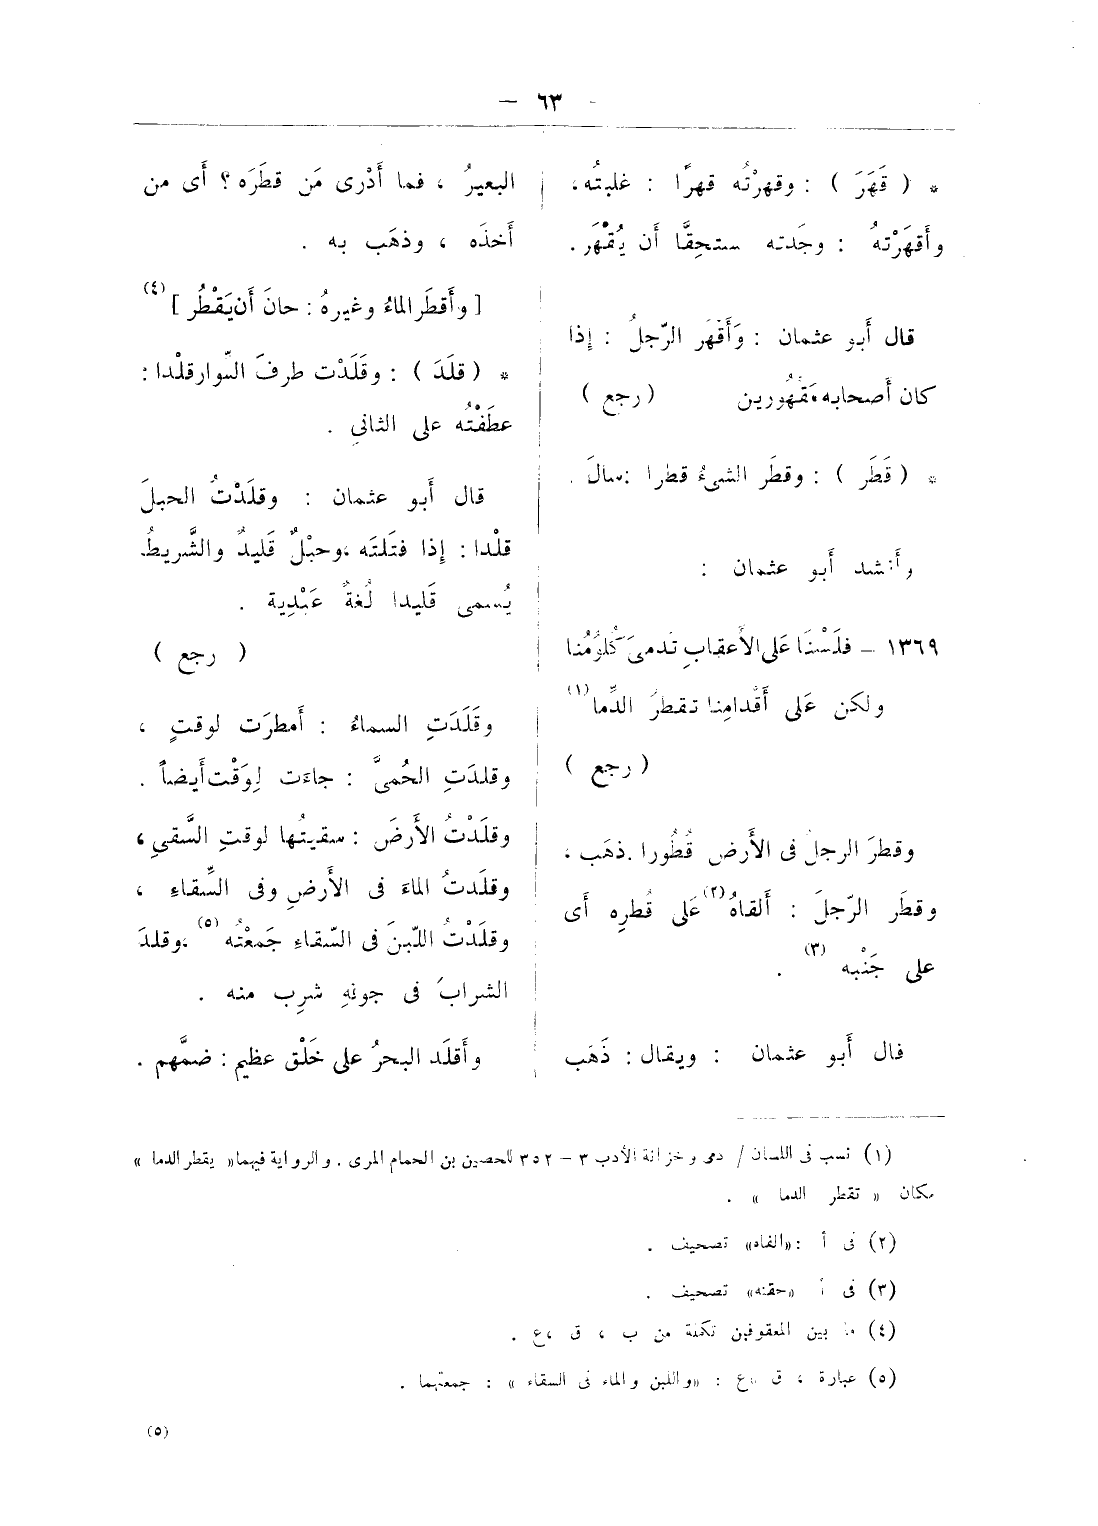 — ٦٣ —
* ( قَهَرَ ) : وقهرْتُه قهرًا : غلبتُه،
وأَقهَرْتهُ : وجَدته ستحِقًّا أن يُقْهَر.
قال أَبو عثمان : وَأَقْهَر الرّجلُ : إِذا
كان أَصحابه مَقهُورين ( رجع )
* ( قَطَر ) : وقطَر الشىءُ قطرا : سالَ .
وأنشد أَبو عثمان :
١٣٦٩ – فلَسْنَا عَلى الأَعقابِ تَدمىَ كُلُومُنا
ولكن عَلى أَقْدامِنا تقطرُ الدِّما (١)
( رجع )
وقطرَ الرجلُ فى الأَرض قُطُورا . ذهَب ،
وقطَر الرّجلَ : أَلقاهُ (٢) عَلى قُطرِه أَى
على جَنْبه (٣) .
قال أَبو عثمان : ويقال : ذَهَب
البعيرُ ، فما أَدْرى مَن قطَرَه ؟ أَى من
أَخذَه ، وذهَب به .
[ وأَقطَر الماءُ وغيرهُ : حانَ أَن يَقْطُر ] (٤)
* ( قلَدَ ) : وقَلَدْت طرفَ السِّوار قلْدا :
عطَفْتُه على الثانىِ .
قال أَبو عثمان : وقلَدْتُ الحبلَ
قلْدا : إِذا فتَلتَه ،وحبْلٌ قَليدٌ والشَّريطُ
يُسمى قَليدا لُغةٌ عَبْدِية .
( رجع )
وقَلَدَتِ السماءُ : أَمطرَت لوقتٍ ،
وقلدَتِ الحُمىَّ : جاءَت لِوَقْت أَيضاً .
وقلَدْتُ الأَرضَ : سقيتُها لوقتِ السَّقىِ ،
وقلَدتُ الماءَ فى الأَرضِ وفى السِّقاءِ ،
وقلَدْتُ اللّبنَ فى السّقاءِ جَمعْتُه (٥) ،وقلدَ
الشرابَ فى جوفهِ شرِب منه .
وأَقلَد البحرُ على خَلْق عظيم : ضمَّهم .
(١) نسب فى اللسان / دمى وخزانة الأدب ٣ – ٣٥٢ للحصين بن الحمام المرى . والرواية فيهما« يقطر الدما »
مكان « تقطر الدما » .
(٢) فى أ : «الفاه» تصحيف .
(٣) فى أ «حقنه» تصحيف .
(٤) ما بين المعقوفين تكملة من ب ، ق ،ع .
(٥) عبارة ، ق ،ع : «واللبن والماء فى السقاء » : جمعتهما .
(٥)